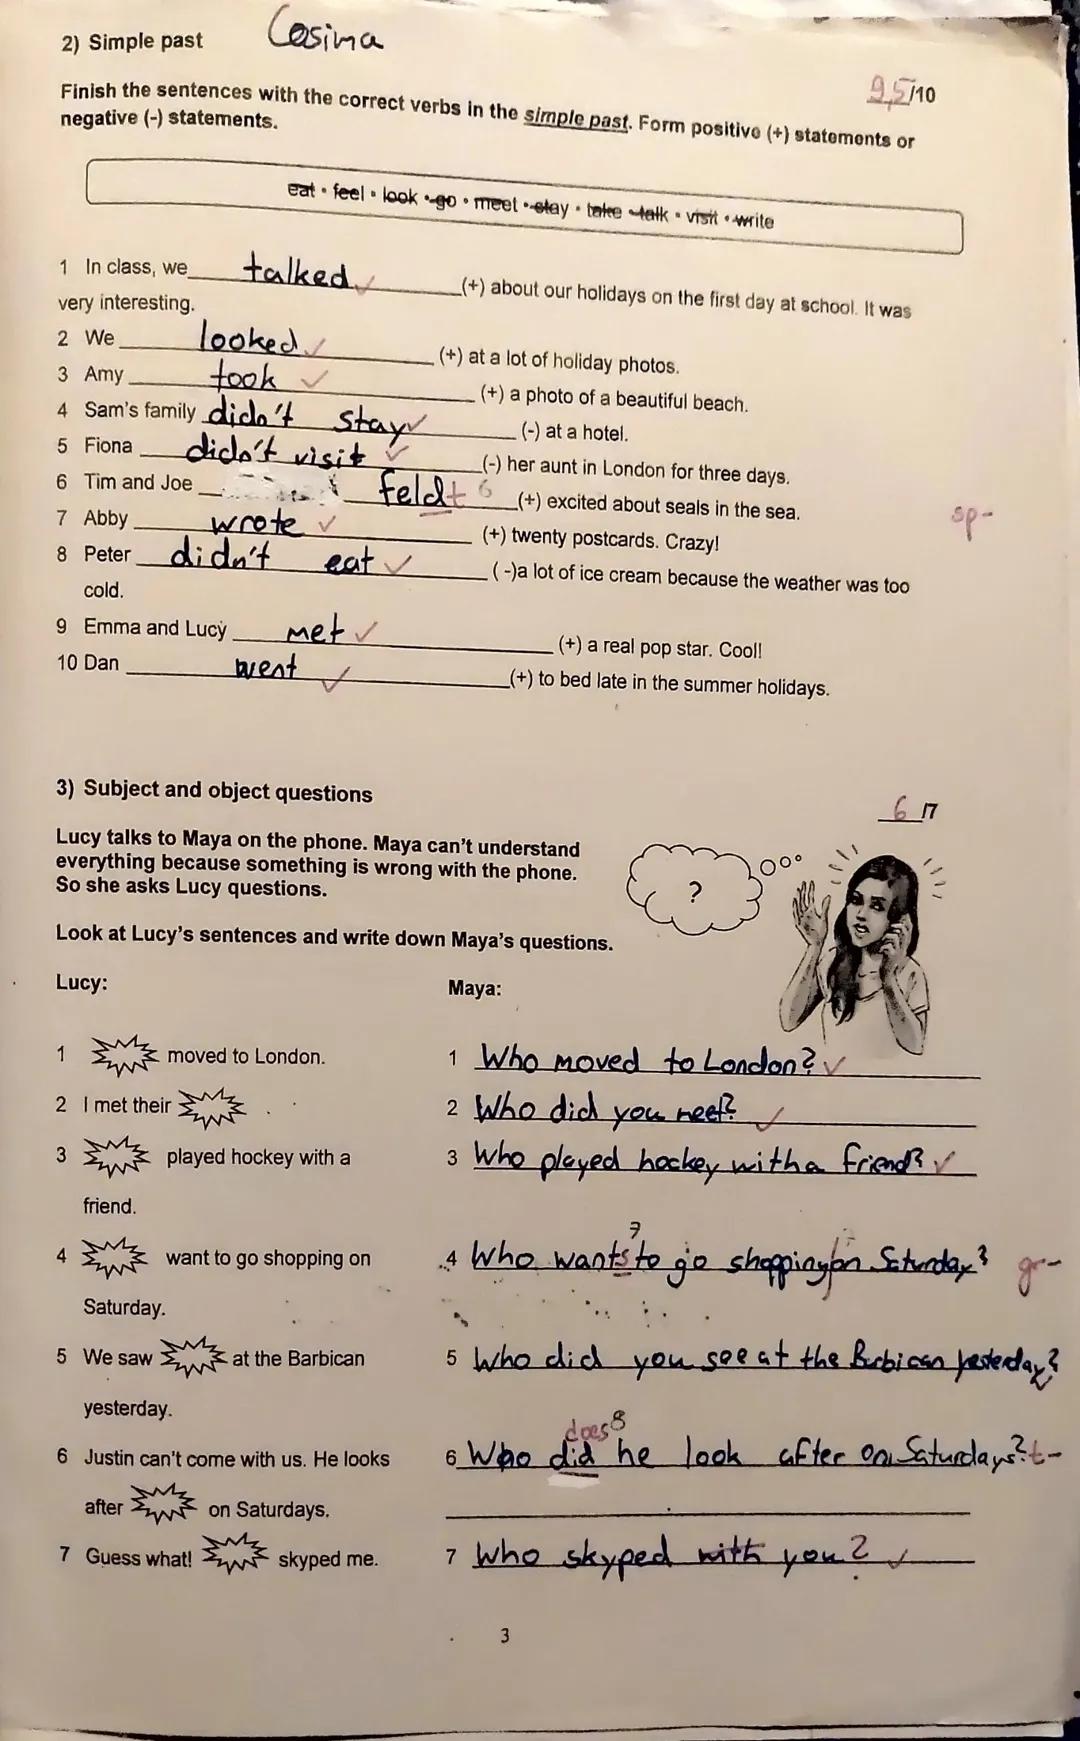 2) Simple past Cosima
9,5/10
Finish the sentences with the correct verbs in the simple past. Form positive (+) statements or
negative (-) statements.
eat • feel • look • go • meet • stay • take • talk • visit • write
1 In class, we talked (+) about our holidays on the first day at school. It was
very interesting.
2 We looked (+) at a lot of holiday photos.
3 Amy took (+) a photo of a beautiful beach.
4 Sam's family didn't stay (-) at a hotel.
5 Fiona didn't visit (-) her aunt in London for three days.
6 Tim and Joe feldt 6 (+) excited about seals in the sea. sp-
7 Abby wrote (+) twenty postcards. Crazy!
8 Peter didn't eat (-)a lot of ice cream because the weather was too
cold.
9 Emma and Lucy met (+) a real pop star. Cool!
10 Dan went (+) to bed late in the summer holidays.
3) Subject and object questions
6/7
Lucy talks to Maya on the phone. Maya can't understand
everything because something is wrong with the phone.
So she asks Lucy questions.
?
Look at Lucy's sentences and write down Maya's questions.
Lucy: Maya:
1 moved to London. 1 Who moved to London?
2 I met their . 2 Who did you meet?
3 played hockey with a 3 Who played hockey with a friend?
friend.
7
4 want to go shopping on 4 Who wants to go shopping on Saturday? gr-
Saturday.
5 We saw at the Barbican 5 Who did you see at the Barbican yesterday?
yesterday.
does 8
6 Justin can't come with us. He looks 6 Who did he look after on Saturdays? t-
after on Saturdays.
7 Guess what! skyped me. 7 Who skyped with you?
3